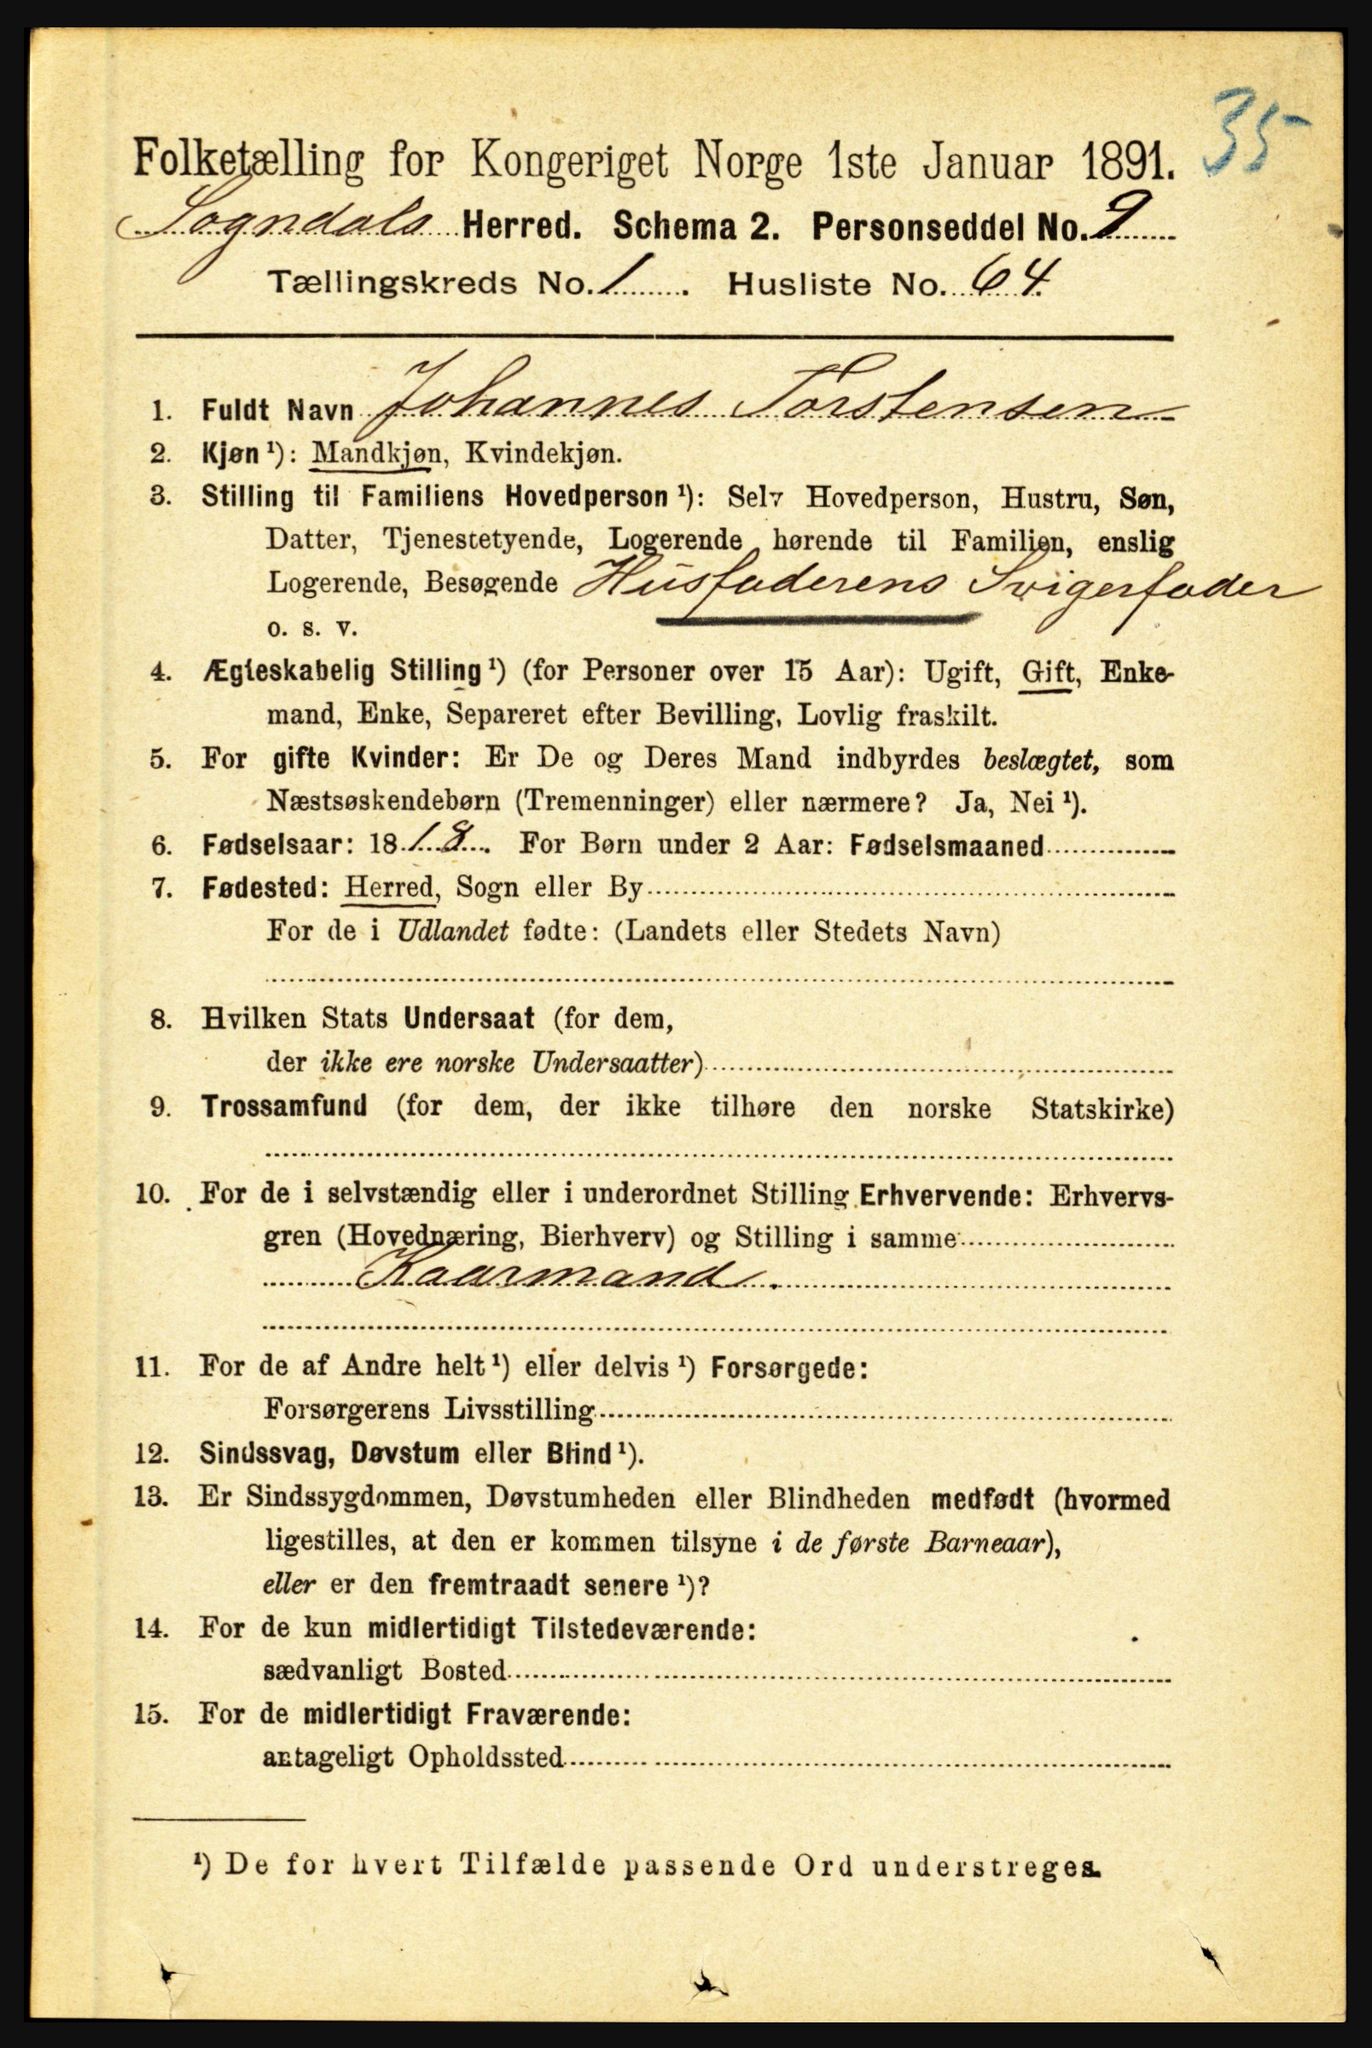 35
Folketælling for Kongeriget Norge 1ste Januar 1891.
Sogndals Herred. Schema 2. Personseddel No. 9
Tællingskreds No. 1. Husliste No. 64.
1. Fuldt Navn Johannes Torstensen
2. Kjøn ¹): Mandkjøn, Kvindekjøn.
3. Stilling til Familiens Hovedperson ¹): Selv Hovedperson, Hustru, Søn,
Datter, Tjenestetyende, Logerende hørende til Familien, enslig
Logerende, Besøgende Husfaderens Svigerfader
o. s. v.
4. Ægteskabelig Stilling ¹) (for Personer over 15 Aar): Ugift, Gift, Enke-
mand, Enke, Separeret efter Bevilling, Lovlig fraskilt.
5. For gifte Kvinder: Er De og Deres Mand indbyrdes beslægtet, som
Næstsøskendebørn (Tremenninger) eller nærmere? Ja, Nei ¹).
6. Fødselsaar: 1818. For Børn under 2 Aar: Fødselsmaaned
7. Fødested: Herred, Sogn eller By
For de i Udlandet fødte: (Landets eller Stedets Navn)
8. Hvilken Stats Undersaat (for dem,
der ikke ere norske Undersaatter)
9. Trossamfund (for dem, der ikke tilhøre den norske Statskirke)
10. For de i selvstændig eller i underordnet Stilling Erhvervende: Erhvervs-
gren (Hovednæring, Bierhverv) og Stilling i samme
Kaarmand.
11. For de af Andre helt ¹) eller delvis ¹) Forsørgede:
Forsørgerens Livsstilling
12. Sindssvag, Døvstum eller Blind ¹).
13. Er Sindssygdommen, Døvstumheden eller Blindheden medfødt (hvormed
ligestilles, at den er kommen tilsyne i de første Barneaar),
eller er den fremtraadt senere ¹)?
14. For de kun midlertidigt Tilstedeværende:
sædvanligt Bosted
15. For de midlertidigt Fraværende:
antageligt Opholdssted
¹) De for hvert Tilfælde passende Ord understreges.